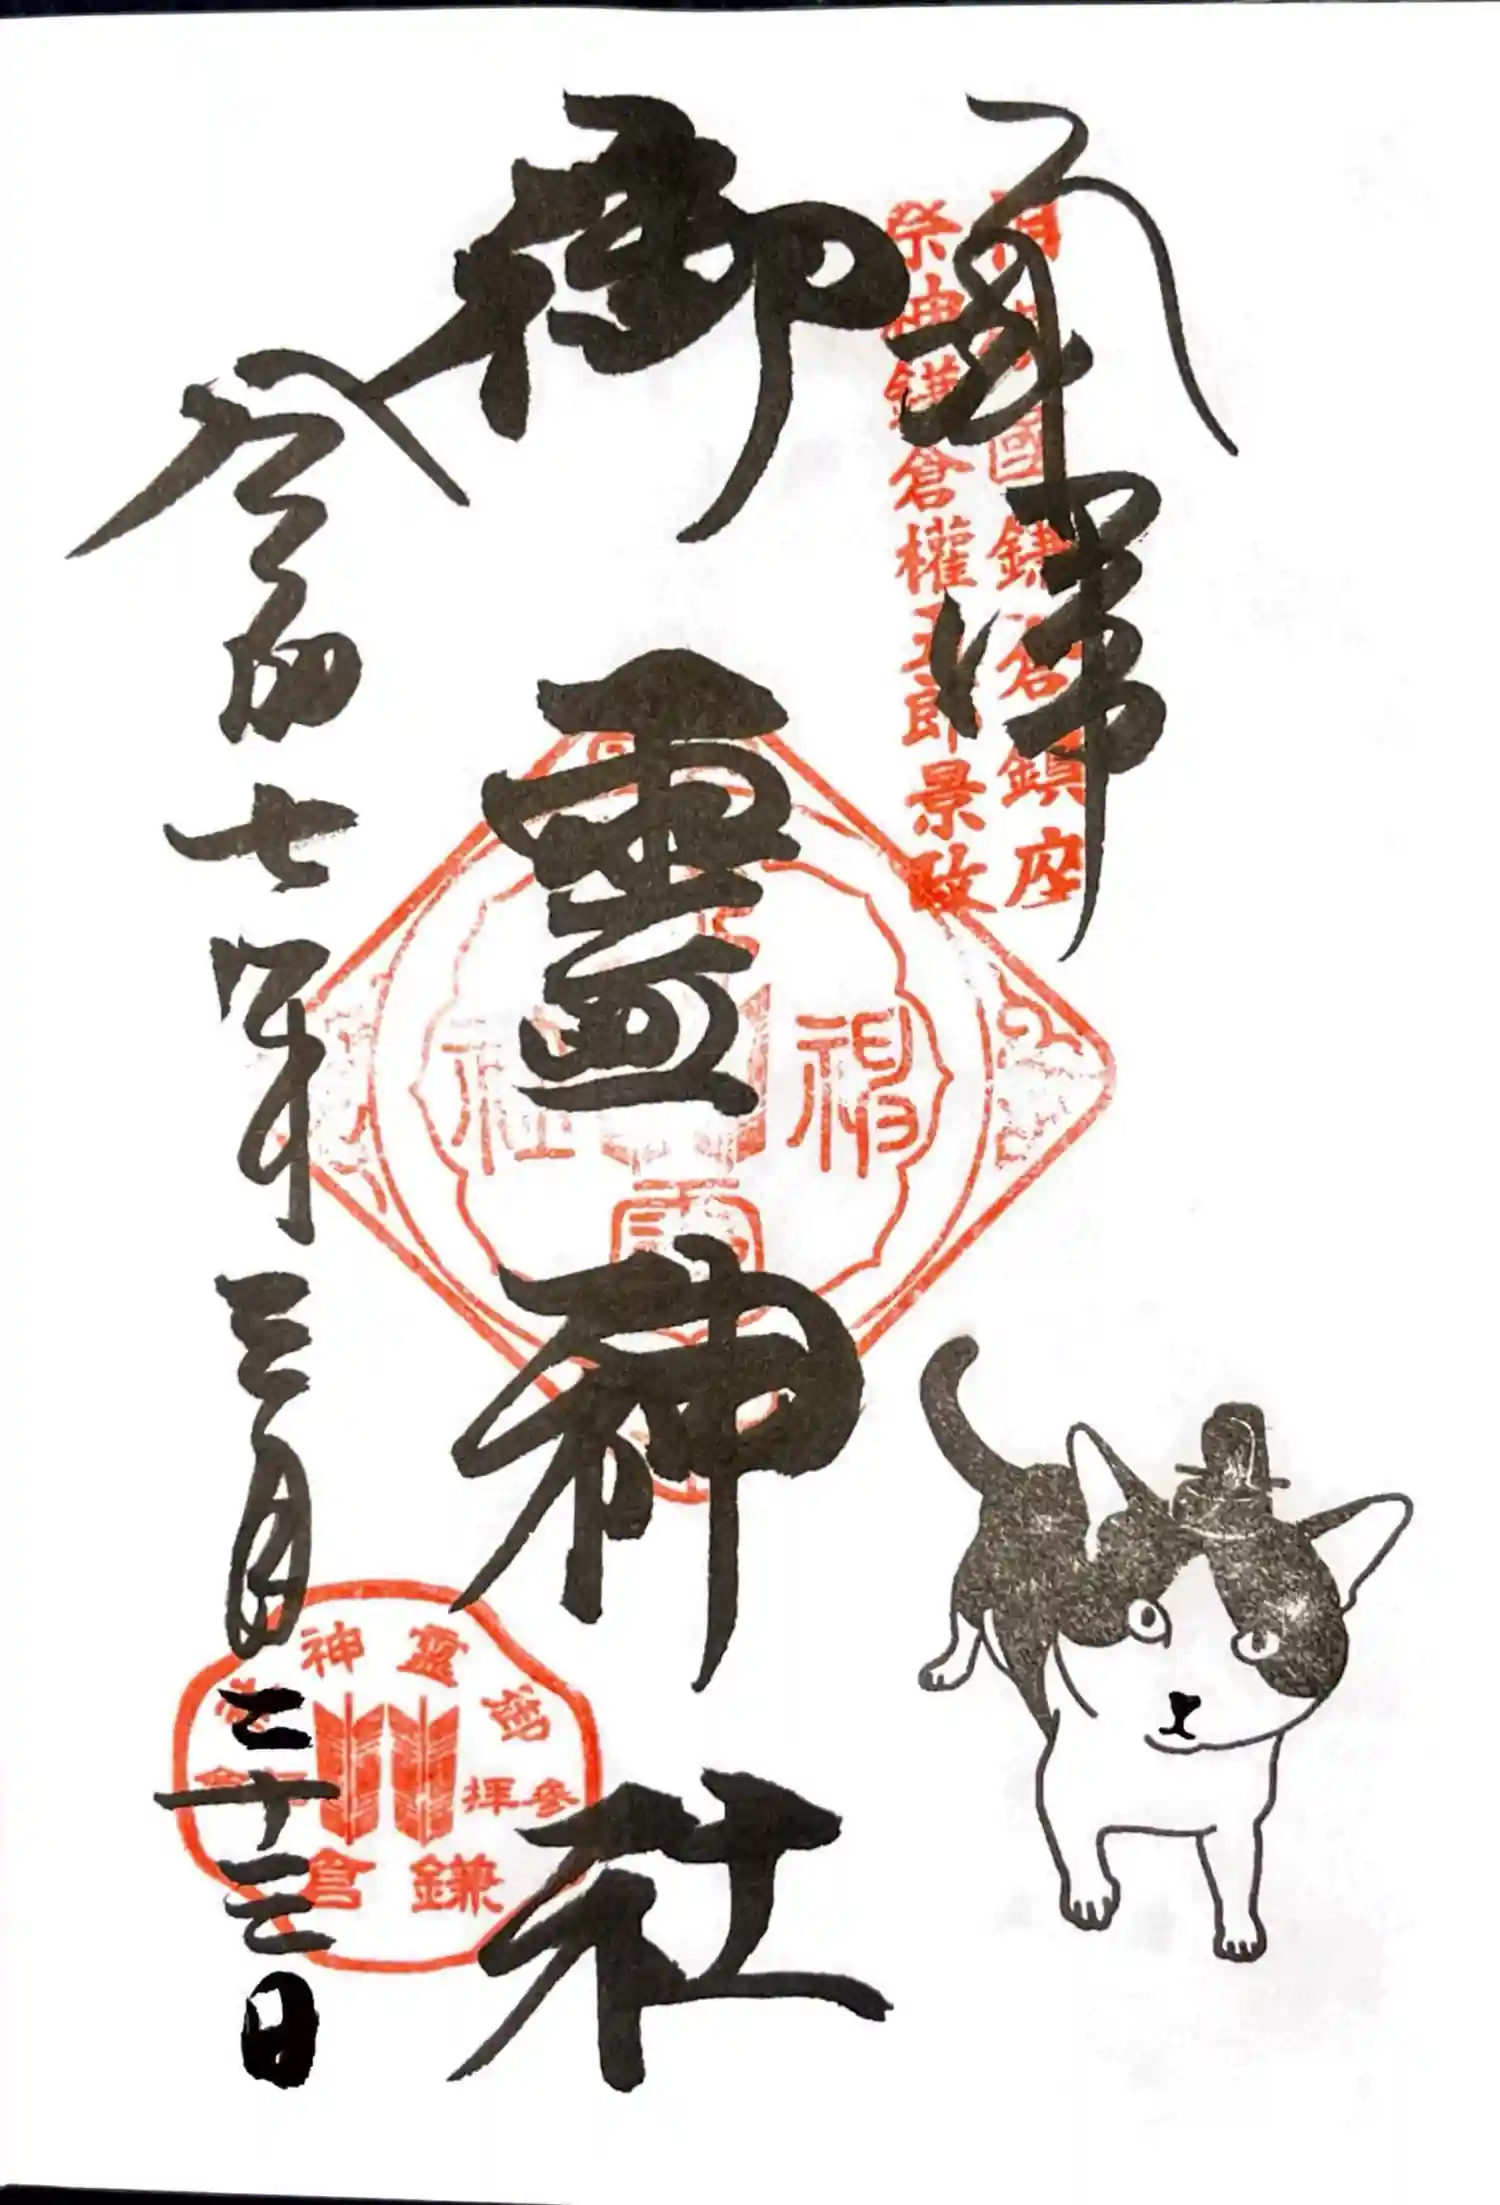 奉拝
相模國鎌倉鎮座
祭神鎌倉權五郎景政
御靈神社
神
社
靈
令和七年三月二十三日
御靈神社
参拝
鎌倉